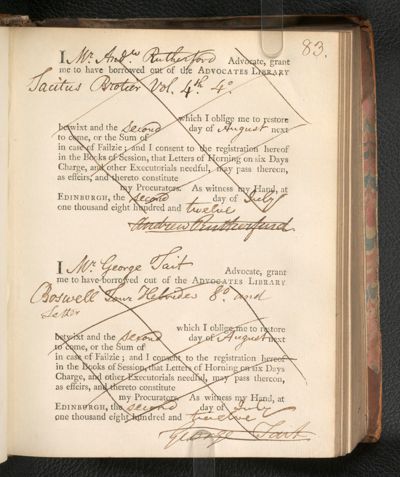 83.
I Mr. Andw. Rutherford Advocate, grant
me to have borrowed out of the ADVOCATES LIBRARY
Tacitus Brotier Vol. 4th. 4o.
which I oblige me to restore
betwixt and the second day of August next
to come, or the Sum of
in case of Failzie; and I consent to the registration hereof
in the Books of Session, that Letters of Horning on six Days
Charge, and other Executorials needful, may pass thereon,
as effeirs, and thereto constitute
my Procurators. As witness my Hand, at
EDINBURGH, the second day of July
one thousand eight hundred and twelve
Andrew Rutherfurd
I Mr. George Tait Advocate, grant
me to have borrowed out of the ADVOCATES LIBRARY
Boswell Tour Hebrides 8o. and
which I oblige me to restore
betwixt and the second day of August next
to come, or the Sum of
in case of Failzie; and I consent to the registration hereof
in the Books of Session, that Letters of Horning on six Days
Charge, and other Executorials needful, may pass thereon,
as effeirs, and thereto constitute
my Procurators. As witness my Hand, at
EDINBURGH, the second day of July
one thousand eight hundred and twelve
George Tait